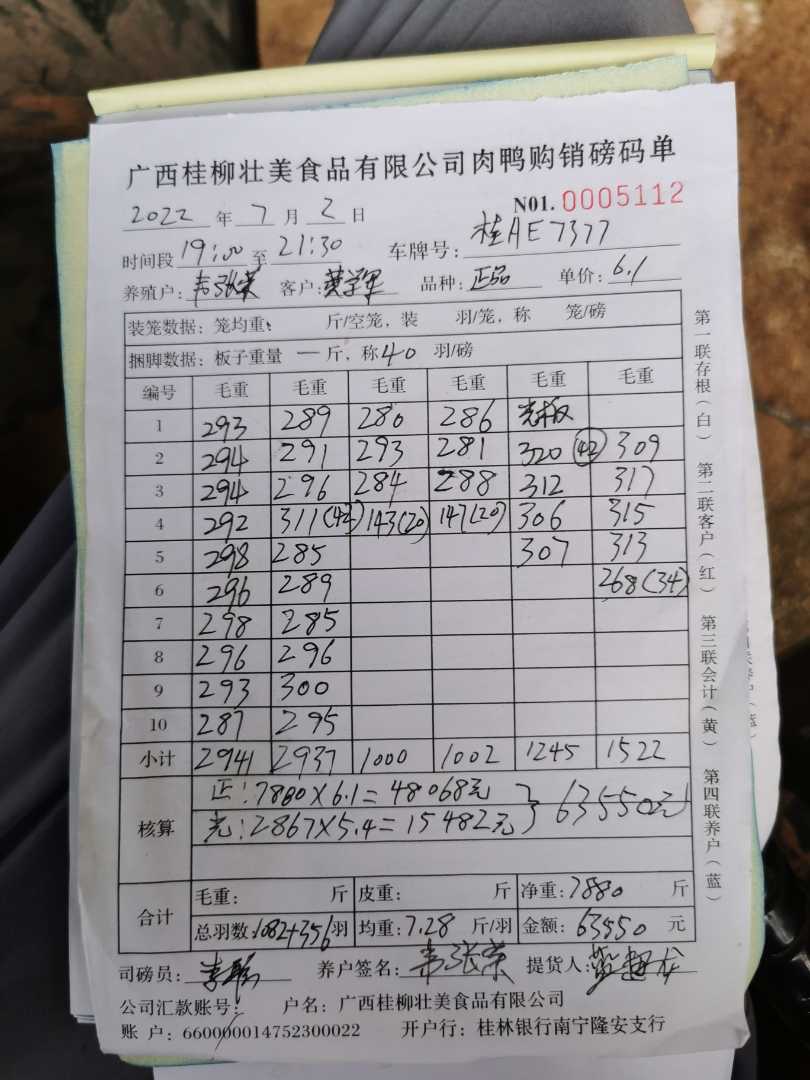 广西桂柳壮美食品有限公司肉鸭购销磅码单
2022 年 7 月 2 日 N01. 0005112
时间段 19:00 至 21:30 车牌号: 桂AE7377
养殖户: 韦张荣 客户: 黄学军 品种: 正品 单价: 6.1
装笼数据: 笼均重: 斤/空笼, 装 羽/笼, 称 笼/磅
捆脚数据: 板子重量 一 斤, 称 40 羽/磅
编号 毛重 毛重 毛重 毛重 毛重 毛重
1 293 289 280 286 光板
2 294 291 293 281 320 (42) 309
3 294 296 284 288 312 317
4 292 311(42) 143(20) 147(20) 306 315
5 298 285 307 313
6 296 289 268(34)
7 298 285
8 296 296
9 293 300
10 287 295
小计 2941 2937 1000 1002 1245 1522
核算 正:7880×6.1=48068元 } 63550元
光:2867×5.4=15482元
合计 毛重: 斤 皮重: 斤 净重: 7880 斤
总羽数: 1082+356 羽 均重: 7.28 斤/羽 金额: 63550 元
司磅员: 养户签名: 韦张荣 提货人:
公司汇款账号: 户名: 广西桂柳壮美食品有限公司
账 户: 660000014752300022 开户行: 桂林银行南宁隆安支行
第一联存根(白) 第二联客户(红) 第三联会计(黄) 第四联养户(蓝)